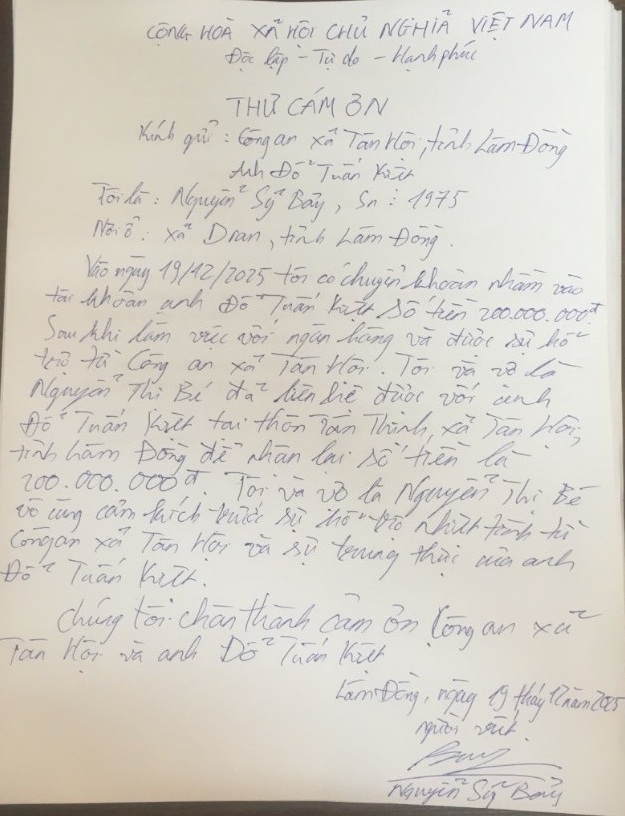 CỘNG HOÀ XÃ HỘI CHỦ NGHĨA VIỆT NAM
Độc lập - Tự do - Hạnh phúc
THƯ CẢM ƠN
Kính gửi : Công an xã Tân Hội, tỉnh Lâm Đồng
Anh Đỗ Tuấn Kiệt
Tôi là : Nguyễn Sỹ Bảy, Sn : 1975
Nơi ở : xã Dran, tỉnh Lâm Đồng.
Vào ngày 19/12/2025 tôi có chuyển khoản nhầm vào
tài khoản anh Đỗ Tuấn Kiệt số tiền 200.000.000đ
Sau khi làm việc với ngân hàng và được sự hỗ
trợ từ Công an xã Tân Hội. Tôi và vợ là
Nguyễn Thị Bé đã liên hệ được với anh
Đỗ Tuấn Kiệt tại thôn Tân Thịnh, xã Tân Hội,
tỉnh Lâm Đồng để nhận lại số tiền là
200.000.000đ. Tôi và vợ là Nguyễn Thị Bé
vô cùng cảm kích trước sự hỗ trợ nhiệt tình từ
Công an xã Tân Hội và sự trung thực của anh
Đỗ Tuấn Kiệt.
Chúng tôi chân thành cảm ơn Công an xã
Tân Hội và anh Đỗ Tuấn Kiệt
Lâm Đồng, ngày 19 tháng 12 năm 2025
người viết
Nguyễn Sỹ Bảy